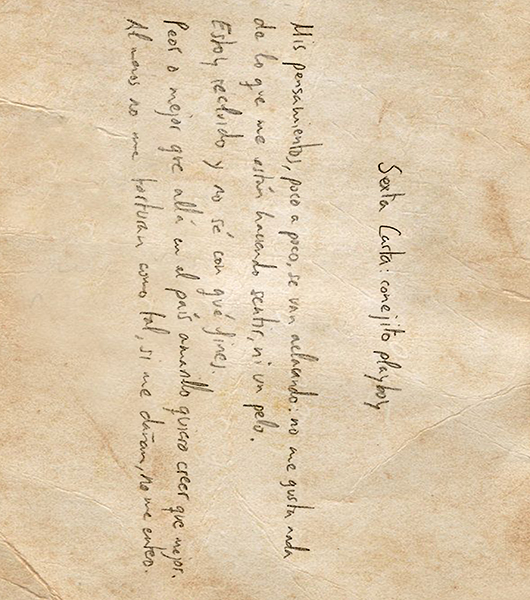 Sexta Carta: conejito playboy
Mis pensamientos, poco a poco, se van aclarando: no me gusta nada
de lo que me están haciendo sentir, ni un pelo.
Estoy recluido y no sé con qué fines.
Peor o mejor que allá en el país amarillo quiero creer que mejor.
Al menos no me torturan como tal, si me dañan, no me entero.